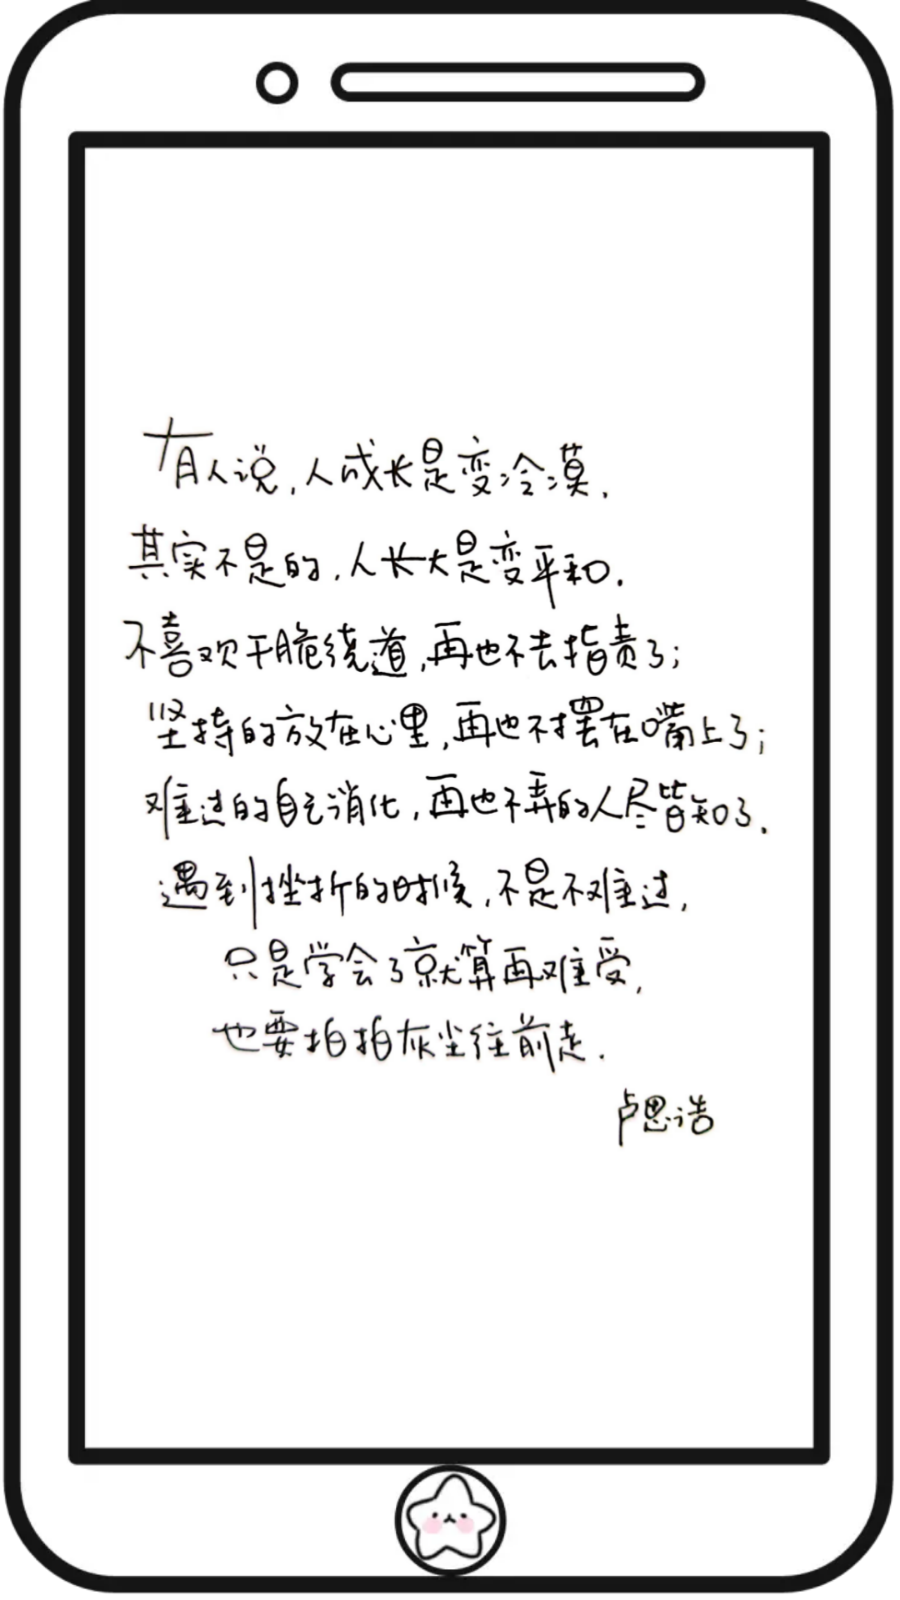 有人说,人成长是变冷漠.
其实不是的,人长大是变平和.
不喜欢干脆绕道,再也不去指责了;
坚持的放在心里,再也不摆在嘴上了;
难过的自己消化,再也不弄的人尽皆知了.
遇到挫折的时候,不是不难过,
只是学会了就算再难受,
也要拍拍灰尘往前走.
卢思浩